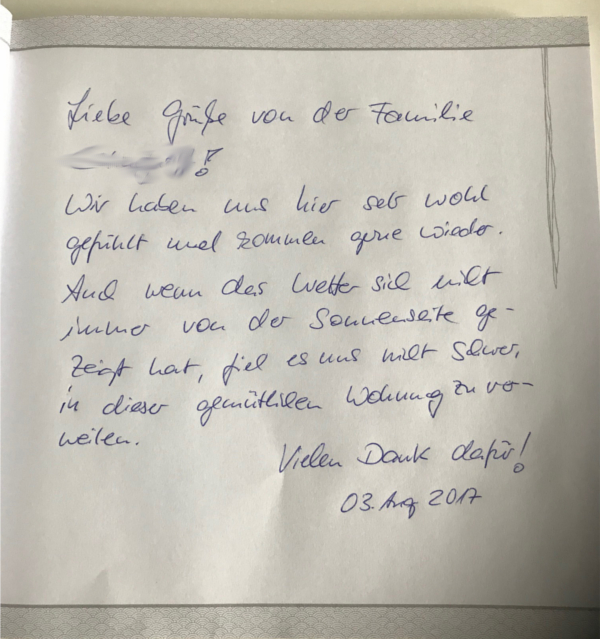 Liebe Grüße von der Familie
!
Wir haben uns hier sehr wohl
gefühlt und kommen gerne wieder.
Auch wenn das Wetter sich nicht
immer von der Sonnenseite ge-
zeigt hat, fiel es uns nicht schwer,
in dieser gemütlichen Wohnung zu ver-
weilen.
Vielen Dank dafür!
03. Aug 2017